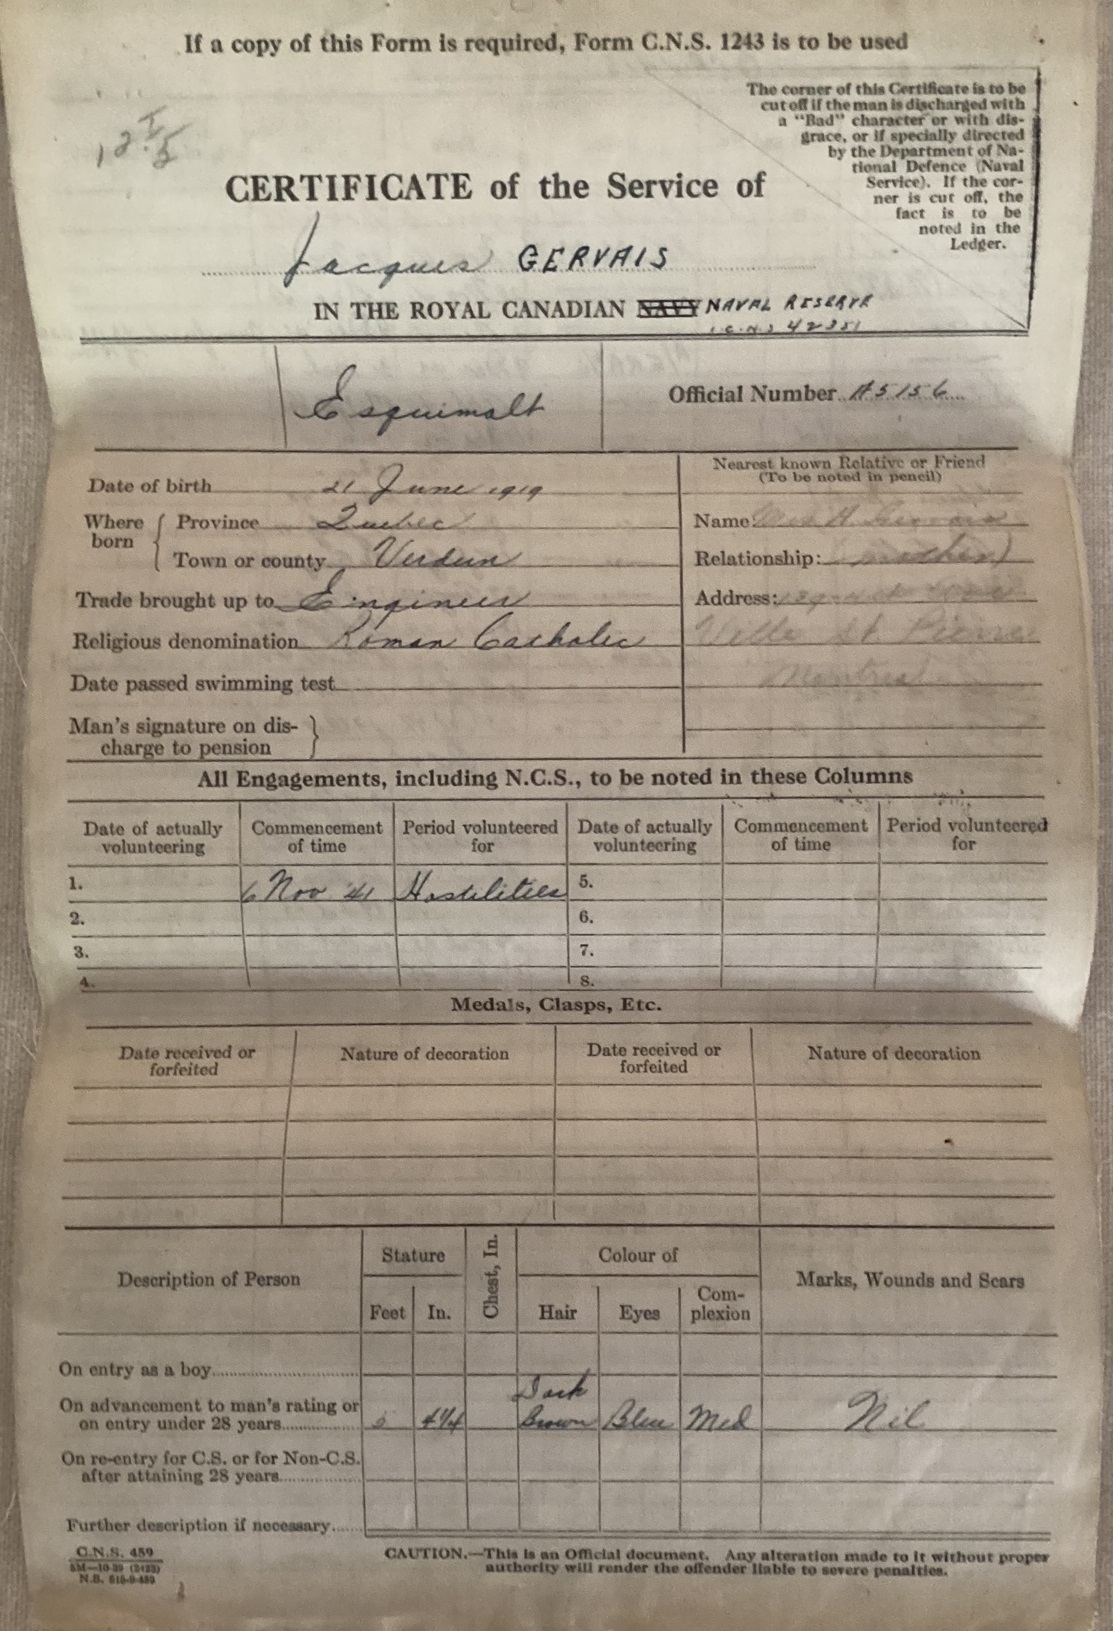 If a copy of this Form is required, Form C.N.S. 1243 is to be used
The corner of this Certificate is to be
cut off if the man is discharged with
a "Bad" character or with dis-
grace, or if specially directed
by the Department of Na-
tional Defence (Naval
Service). If the cor-
ner is cut off, the
fact is to be
noted in the
Ledger.
CERTIFICATE of the Service of
Jacques GERVAIS
IN THE ROYAL CANADIAN NAVY NAVAL RESERVE
Esquimalt
Official Number A5156
Date of birth 21 June 1919
Where born
Province Quebec
Town or county Verdun
Trade brought up to Engineer
Religious denomination Roman Catholic
Date passed swimming test
Man's signature on dis-
charge to pension
Nearest known Relative or Friend
(To be noted in pencil)
Name
Relationship: mother)
Address:
Ville St Pierre
Montreal
All Engagements, including N.C.S., to be noted in these Columns
Date of actually volunteering Commencement of time Period volunteered for Date of actually volunteering Commencement of time Period volunteered for
1. 6 Nov 41 Hostilities 5.
2. 6.
3. 7.
4. 8.
Medals, Clasps, Etc.
Date received or forfeited Nature of decoration Date received or forfeited Nature of decoration
Description of Person Stature Chest, In. Colour of Marks, Wounds and Scars
Feet In. Hair Eyes Com-plexion
On entry as a boy
On advancement to man's rating or
on entry under 28 years 5 4¼ Dark Brown Blue Med Nil
On re-entry for C.S. or for Non-C.S.
after attaining 28 years
Further description if necessary
C.N.S. 459
CAUTION.—This is an Official document. Any alteration made to it without proper
authority will render the offender liable to severe penalties.